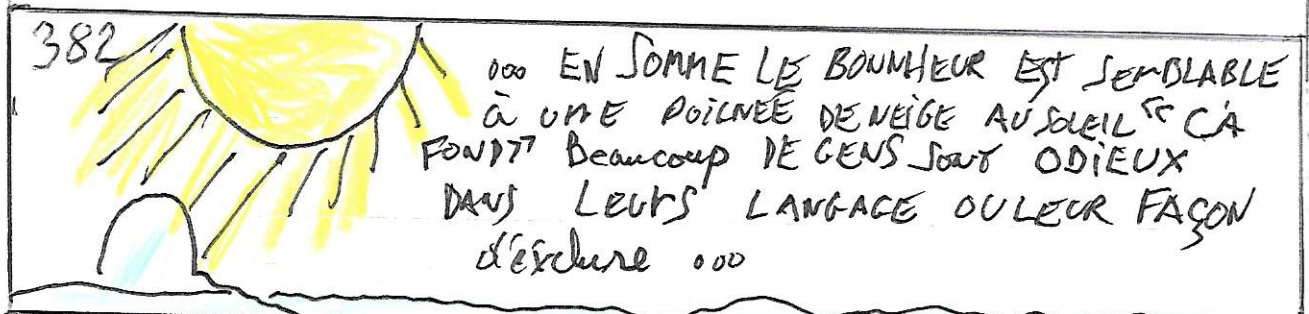 382
... EN SOMME LE BONNHEUR EST SEMBLABLE
à UNE POIGNÉE DE NEIGE AU SOLEIL " CA
FOND" Beaucoup DE GENS SONT ODIEUX
DANS LEURS LANGAGE OU LEUR FAÇON
d'éxclure ...